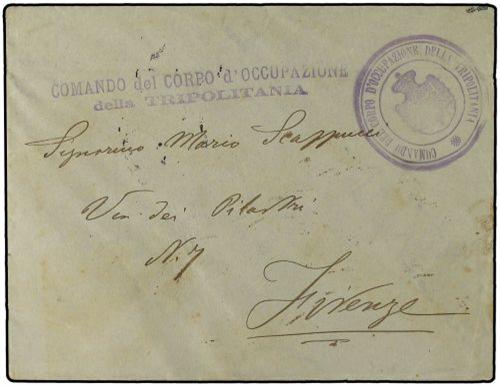 COMANDO del CORPO d'OCCUPAZIONE
della TRIPOLITANIA
COMANDO DEL CORPO D'OCCUPAZIONE DELLA TRIPOLITANIA
Signorino Mario Scappucci
Via dei Pilastri
N. 7
Firenze